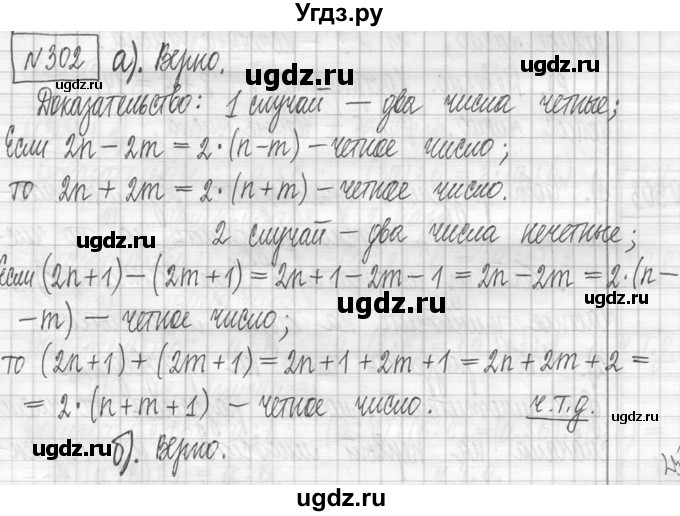 Угдз.ру
№302 а). Верно.
Доказательство: 1 случай — два числа четные;
Если 2n - 2m = 2·(n-m) - четное число;
то 2n + 2m = 2·(n+m) - четное число.
2 случай - два числа нечетные;
Если (2n+1)-(2m+1) = 2n+1-2m-1 = 2n-2m = 2·(n-
-m) - четное число;
то (2n+1)+(2m+1) = 2n+1+2m+1 = 2n+2m+2 =
= 2·(n+m+1) - четное число. ч.т.д.
б). Верно.
ugdz.ru
ugdz.ru
ugdz.ru
ugdz.ru
ugdz.ru
ugdz.ru
ugdz.ru
ugdz.ru
ugdz.ru
ugdz.ru
ugdz.ru